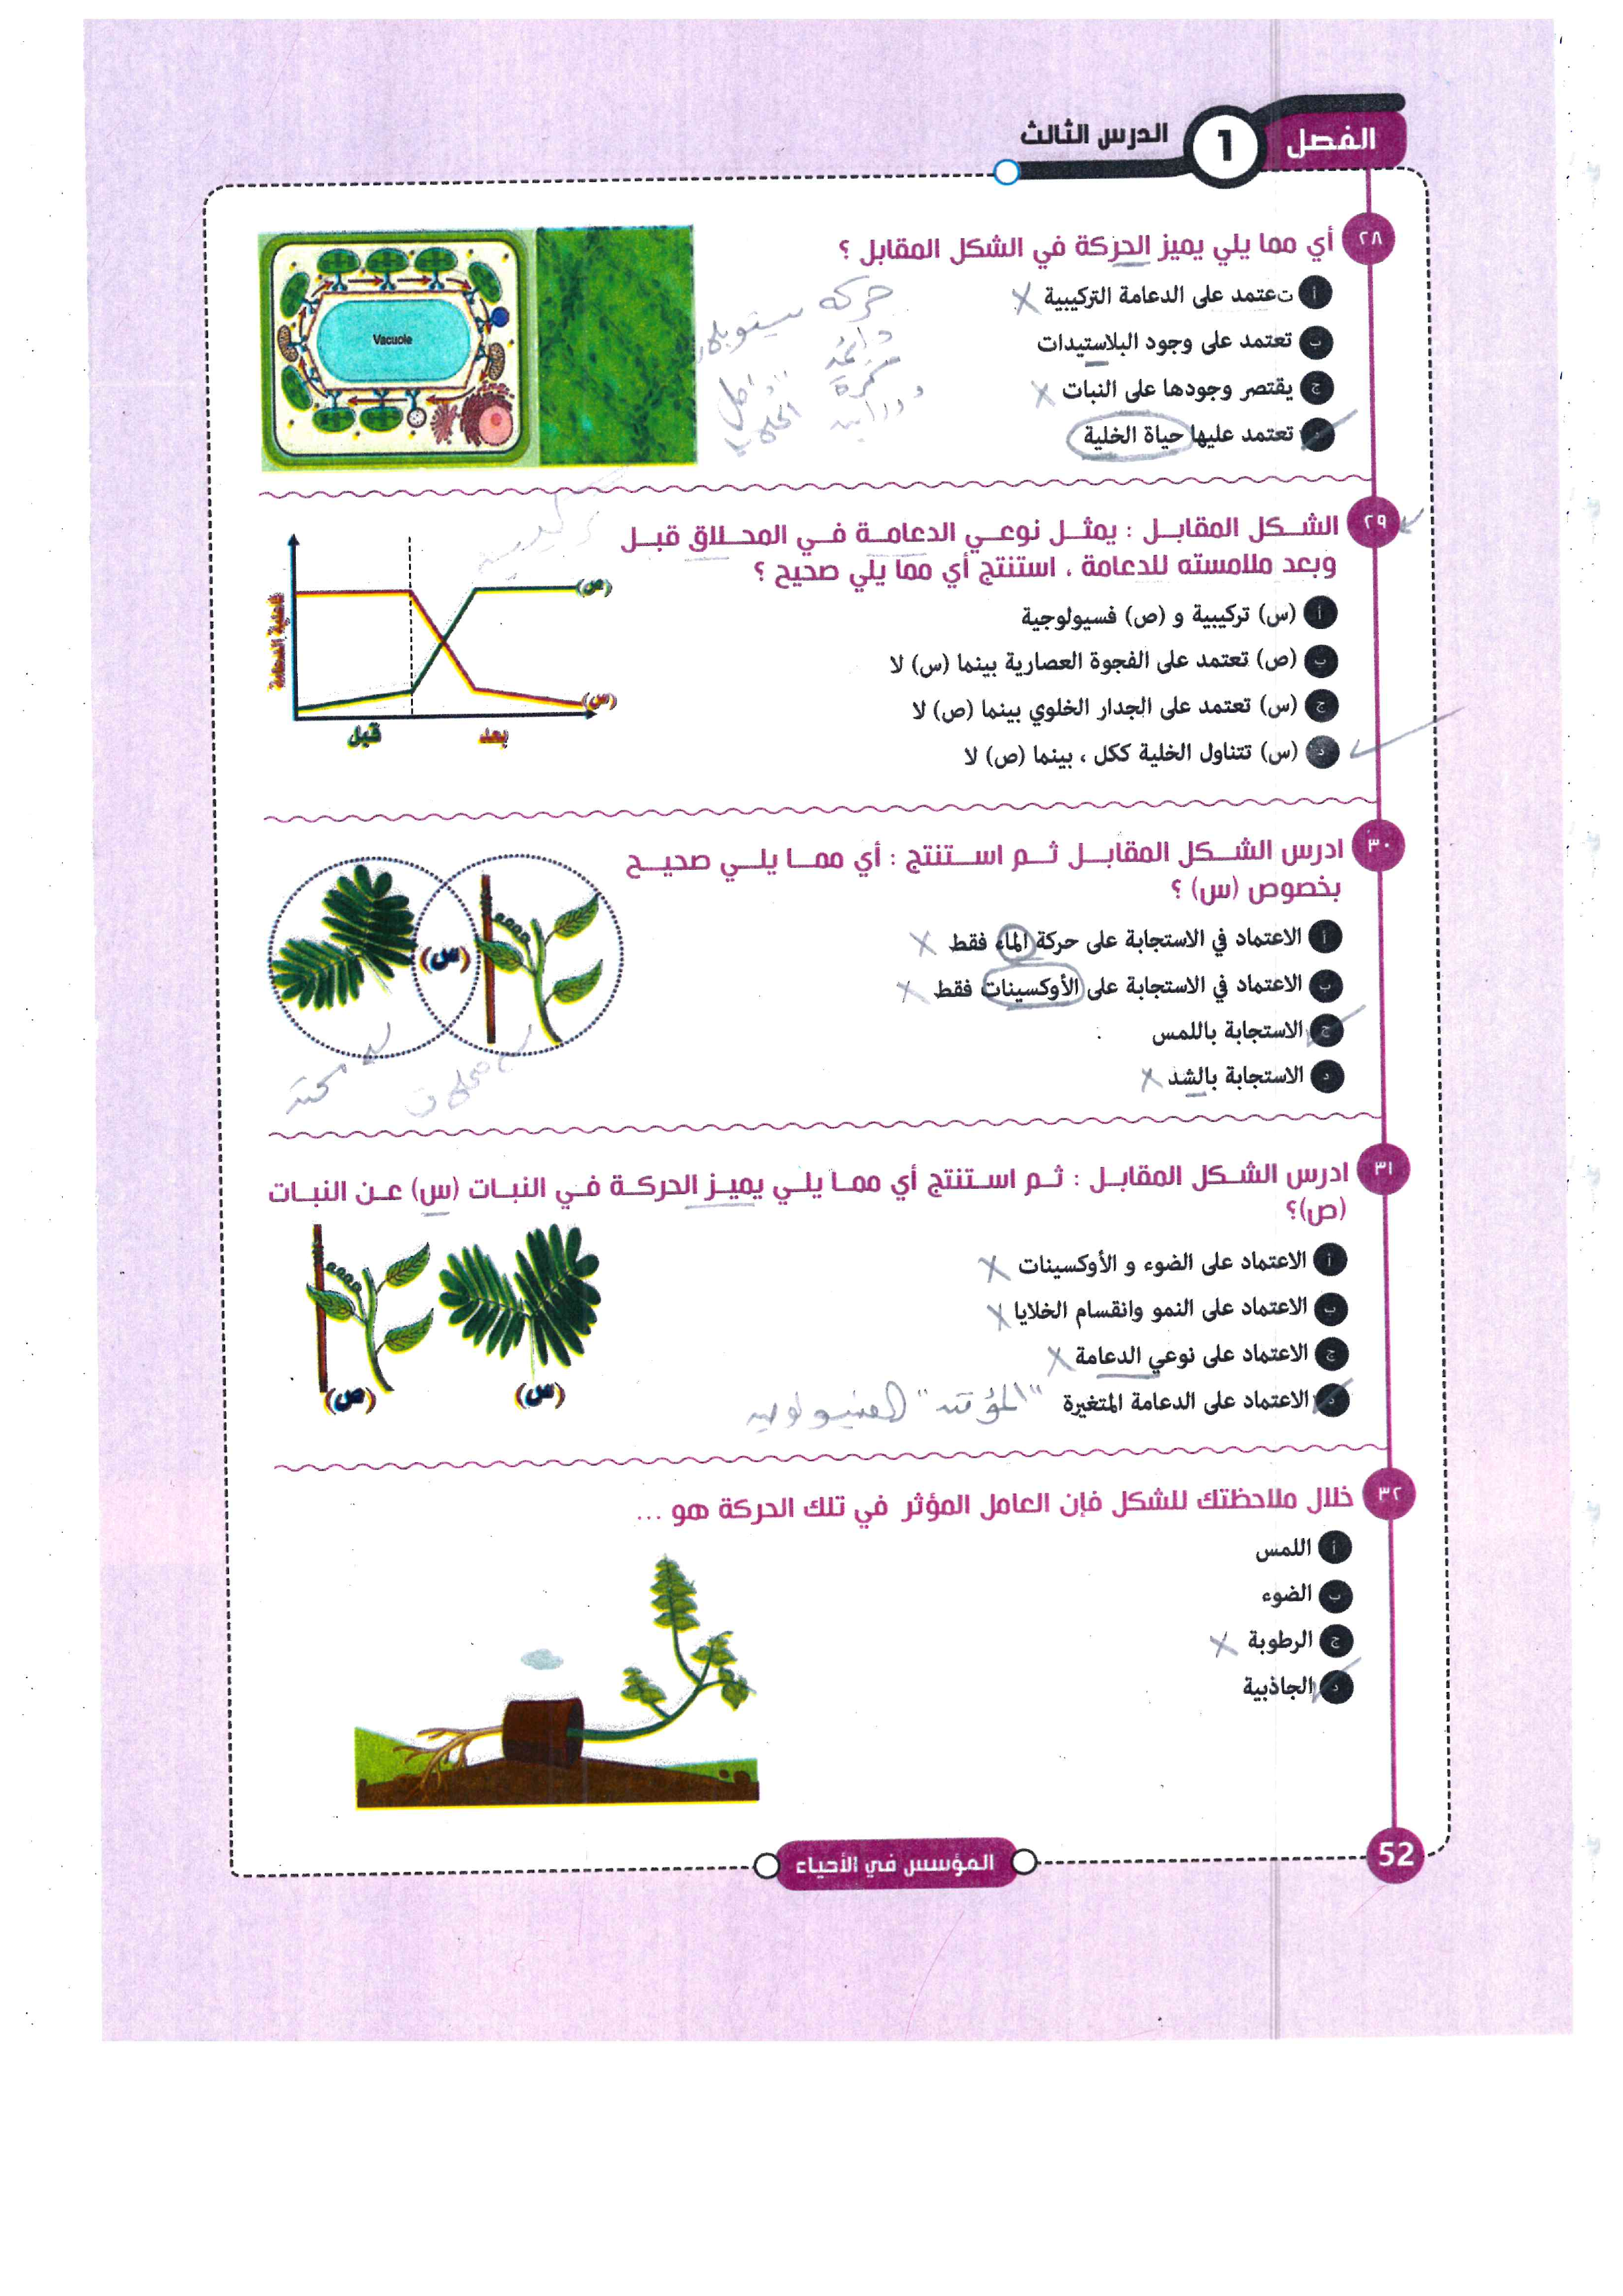 الفصل 1 الدرس الثالث
٢٨ أي مما يلي يميز الحركة في الشكل المقابل ؟
أ تعتمد على الدعامة التركيبية
ب تعتمد على وجود البلاستيدات
ج يقتصر وجودها على النبات
د تعتمد عليها حياة الخلية
Vacuole
حركة
دائمة
٢٩ الشكل المقابل : يمثل نوعي الدعامة في المحلاق قبل
وبعد ملامسته للدعامة ، استنتج أي مما يلي صحيح ؟
أ (س) تركيبية و (ص) فسيولوجية
ب (ص) تعتمد على الفجوة العصارية بينما (س) لا
ج (س) تعتمد على الجدار الخلوي بينما (ص) لا
د (س) تتناول الخلية ككل ، بينما (ص) لا
(ص)
(س)
قبل
بعد
٣٠ ادرس الشكل المقابل ثم استنتج : أي مما يلي صحيح
بخصوص (س) ؟
أ الاعتماد في الاستجابة على حركة الماء فقط
ب الاعتماد في الاستجابة على الأوكسينات فقط
ج الاستجابة باللمس
د الاستجابة بالشد
(س)
٣١ ادرس الشكل المقابل : ثم استنتج أي مما يلي يميز الحركة في النبات (س) عن النبات
(ص)؟
أ الاعتماد على الضوء و الأوكسينات
ب الاعتماد على النمو وانقسام الخلايا
ج الاعتماد على نوعي الدعامة
د الاعتماد على الدعامة المتغيرة "المؤقتة" الفسيولوجية
(س)
(ص)
٣٢ خلال ملاحظتك للشكل فإن العامل المؤثر في تلك الحركة هو ...
أ اللمس
ب الضوء
ج الرطوبة
د الجاذبية
المؤسس في الأحياء
52